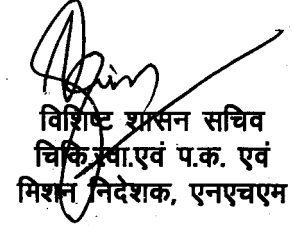 विशिष्ट शासन सचिव
चिकि.स्वा.एवं प.क. एवं
मिशन निदेशक, एनएचएम